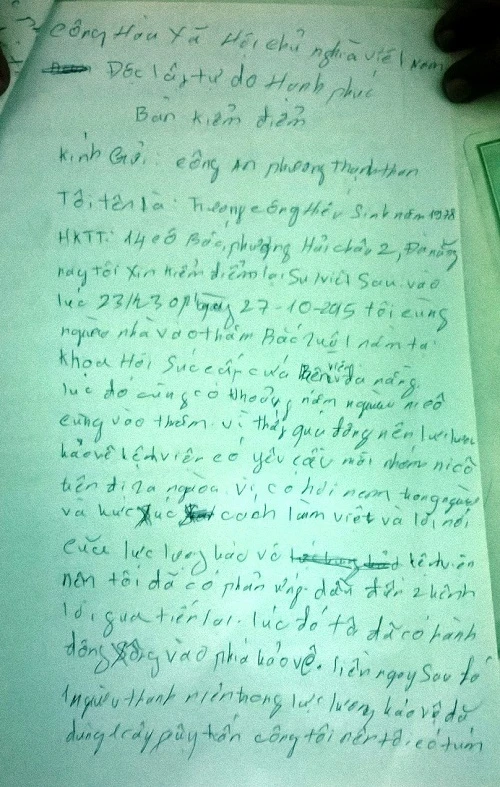 Công Hòa Xã Hội chủ nghĩa việt Nam
Dộc lập tự do Hạnh phúc
Bản kiểm điểm
Kính Gửi: Công An phường Thạch than
Tôi tên là: Trương công Hiếu Sinh năm 1978
HKTT: 14 cô Bắc, phường Hải châu 2, Đà nẵng
nay tôi xin kiểm điểm lại Sự việc Sau. vào
lúc 23h30 Ngày 27-10-2015 tôi cùng
người nhà vào thăm Bác ruột nằm tại
khoa Hồi Sức cấp cứu Bệnh viện đà nẵng
lúc đó cũng có khoảng năm người ni cô
cùng vào thăm. vì thấy quá đông nên lực lượng
bảo vệ bệnh viện có yêu cầu mời nhóm ni cô
tiên đi ra ngoài. vì, có hơi men trong người
và bức xúc cách làm việc và lời nói
của lực lượng bảo vệ bệnh viện
nên tôi đã có phản ứng. dẫn đến 2 bên
lời qua tiến lại. lúc đó tôi đã có hành
động xông vào phía bảo vệ. liền ngay Sau đó
1 người thanh niên trong lực lượng bảo vệ đã
dùng cây tấn công tôi nên tôi có túm